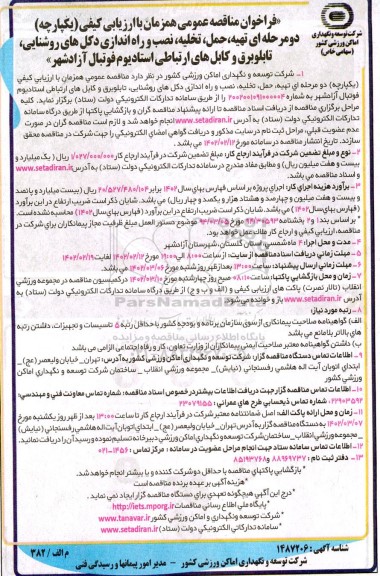 شرکت توسعه و نگهداری
اماکن ورزشی کشور
(سهامی خاص)
«فراخوان مناقصه عمومی همزمان با ارزیابی کیفی (یکپارچه)
دو مرحله ای تهیه، حمل، تخلیه، نصب و راه اندازی دکل های روشنایی،
تابلو برق و کابل های ارتباطی استادیوم فوتبال آزادشهر»
۱- شرکت توسعه و نگهداری اماکن ورزشی کشور در نظر دارد مناقصه عمومی همزمان با ارزیابی کیفی
(یکپارچه) دو مرحله ای تهیه، حمل، تخلیه، نصب و راه اندازی دکل های روشنایی، تابلوبرق و کابل های ارتباطی استادیوم
فوتبال آزادشهر به شماره را از طریق سامانه تدارکات الکترونیکی دولت (ستاد) برگزار نماید. کلیه
مراحل برگزاری مناقصه از دریافت اسناد مناقصه تا ارائه پیشنهاد مناقصه گران و بازگشایی پاکتها از طریق درگاه سامانه
تدارکات الکترونیکی دولت (ستاد) به آدرس www.setadiran.ir انجام خواهد شد و لازم است مناقصه گران در صورت
عدم عضویت قبلی، مراحل ثبت نام در سایت مذکور و دریافت گواهی امضای الکترونیکی را جهت شرکت در مناقصه محقق
سازند. تاریخ انتشار مناقصه در سامانه مورخ ۱۴۰۲/۰۲/۱۲ می باشد.
۲- نوع و مبلغ تضمین شرکت در فرآیند ارجاع کار: مبلغ تضمین شرکت در فرآیند ارجاع کار ۱/۰۲۷/۰۰۰/۰۰۰ ریال (یک میلیارد و
بیست و هفت میلیون ریال) و مطابق مفاد مندرج در سامانه تدارکات الکترونیکی دولت (ستاد) به آدرس www.setadiran.ir
و اسناد مناقصه می باشد.
۳- برآورد هزینه اجرای کار: اجرای پروژه بر اساس فهارس بهای سال ۱۴۰۲ برابر ۲۰/۵۲۷/۴۸۰/۱۰۴ ریال (بیست میلیارد و پانصد
و بیست و هفت میلیون و چهارصد و هشتاد هزار و یکصد و چهار ریال) می باشد. شایان ذکر است ضریب ارتفاع در این برآورد
(فهارس بهای سال ۱۴۰۲) می باشد. شایان ذکر است ضریب ارتفاع در این برآورد (فهارس بهای سال ۱۴۰۲) محاسبه نشده است.
مناقصه، ارزیابی کیفی و ارجاع کار ملاک عمل خواهد بود.
۴- مدت و محل اجرا: ۴ ماه شمسی - استان گلستان، شهرستان آزادشهر
۵- مهلت زمانی دریافت اسناد مناقصه از سایت: از ساعت ۸:۰۰ الی ۱۹:۰۰ مورخ ۱۴۰۲/۰۲/۱۲ لغایت ۱۴۰۲/۰۲/۱۹
۶- مهلت زمانی ارسال پیشنهاد: ساعت ۱۳:۰۰ بعدازظهر روز شنبه مورخ ۱۴۰۲/۰۳/۰۶ می باشد.
۷- زمان و محل بازگشایی پاکتها: ساعت ۰۸:۱۰ صبح روز چهارشنبه مورخ ۱۴۰۲/۰۳/۱۰ در کمیسیون مناقصه در مجموعه ورزشی
انقلاب (تالار نصرت) پاکت های ارزیابی کیفی و (الف و ب و ج) از طریق درگاه سامانه تدارکات الکترونیکی دولت (ستاد) به
آدرس www.setadiran.ir باز و خوانده می شود.
۸- رتبه مورد نیاز:
الف) گواهینامه صلاحیت پیمانکاری از سوی سازمان برنامه و بودجه کشور با حداقل رتبه ۵ تاسیسات و تجهیزات، داشتن رتبه
های بالاتر بلامانع می باشد.
ب) داشتن گواهینامه معتبر صلاحیت ایمنی پیمانکاران از وزارت تعاون، کار و رفاه اجتماعی الزامی می باشد.
۹- اطلاعات تماس دستگاه مناقصه گزار: شرکت توسعه و نگهداری اماکن ورزشی کشور به آدرس: تهران _ خیابان ولیعصر (عج)_
ابتدای اتوبان آیت اله هاشمی رفسنجانی (نیایش)_ مجموعه ورزشی انقلاب _ ساختمان شرکت توسعه و نگهداری اماکن
ورزشی کشور
۱۰- اطلاعات تماس مناقصه گزار جهت دریافت اطلاعات بیشتر در خصوص اسناد مناقصه: شماره تماس معاونت فنی و مهندسی:
۲۲۹۰۳۵۹۳ شماره تماس ذیحسابی طرح های عمرانی: ۲۳۰۷۹۱۵۵
۱۱- زمان و محل ارائه پاکت الف: اصل ضمانتنامه معتبر شرکت در فرآیند ارجاع کار تا ساعت ۱۳:۰۰ بعد از ظهر روز یکشنبه مورخ
۱۴۰۲/۰۳/۰۷ به دستگاه مناقصه گزار به آدرس تهران_ خیابان ولیعصر (عج)_ ابتدای اتوبان آیت اله هاشمی رفسنجانی (نیایش)
_ مجموعه ورزشی انقلاب _ ساختمان شرکت توسعه و نگهداری اماکن ورزشی دبیرخانه تسلیم نموده و رسید آن را دریافت نمایند.
۱۲- اطلاعات تماس سامانه ستاد جهت انجام مراحل عضویت در سامانه: مرکز تماس: ۱۴۵۶-۰۲۱
۱۳- دفتر ثبت نام: ۸۸۹۶۹۷۳۷ و ۸۵۱۹۳۷۶۸
* بازگشایی پاکتهای مناقصه با حداقل دو شرکت کننده و یا بیشتر انجام خواهد شد.
* هزینه آگهی بر عهده برنده مناقصه است
درج این آگهی هیچگونه تعهدی برای دستگاه مناقصه گزار ایجاد نمی نماید.
* پایگاه ملی اطلاع رسانی مناقصات http://iets.mporg.ir
* شرکت توسعه و نگهداری اماکن ورزشی کشور www.tanavar.ir
* سامانه تدارکاتی الکترونیکی دولت (ستاد) www.setadiran.ir
شناسه آگهی: ۱۴۸۷۲۰۶ م الف / ۳۸۲
شرکت توسعه و نگهداری اماکن ورزشی کشور - مدیر امور پیمانها و رسیدگی فنی